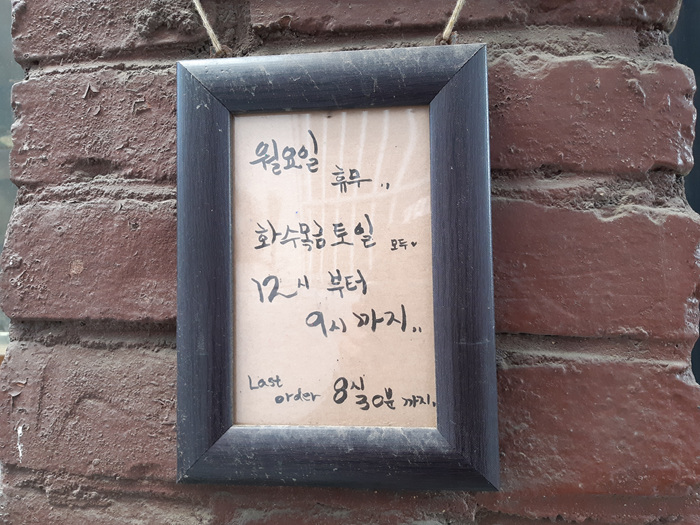 월요일
휴무..
화수목금토일 모두♥
12시 부터
9시 까지..
Last
order 8시 30분 까지.